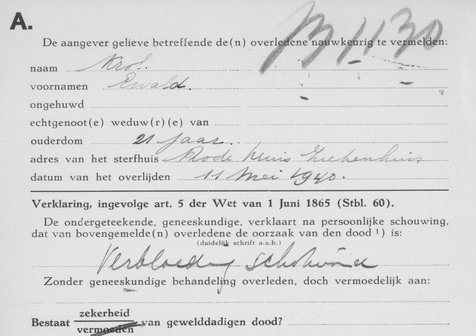 A.
B 1130
De aangever gelieve betreffende de(n) overledene nauwkeurig te vermelden:
naam Krol.
voornamen Ewald.
ongehuwd
echtgenoot(e) weduw(r)(e) van
ouderdom 21 jaar.
adres van het sterfhuis Roode Kruis Ziekenhuis
datum van het overlijden 11 Mei 1940.
Verklaring, ingevolge art. 5 der Wet van 1 Juni 1865 (Stbl. 60).
De ondergeteekende, geneeskundige, verklaart na persoonlijke schouwing,
dat van bovengemeld(n) overledene de oorzaak van den dood ¹) is:
(duidelijk schrift a.u.b.)
Verbloeding schotwond
Zonder geneeskundige behandeling overleden, doch vermoedelijk aan:
zekerheid
Bestaat vermoeden van gewelddadigen dood?